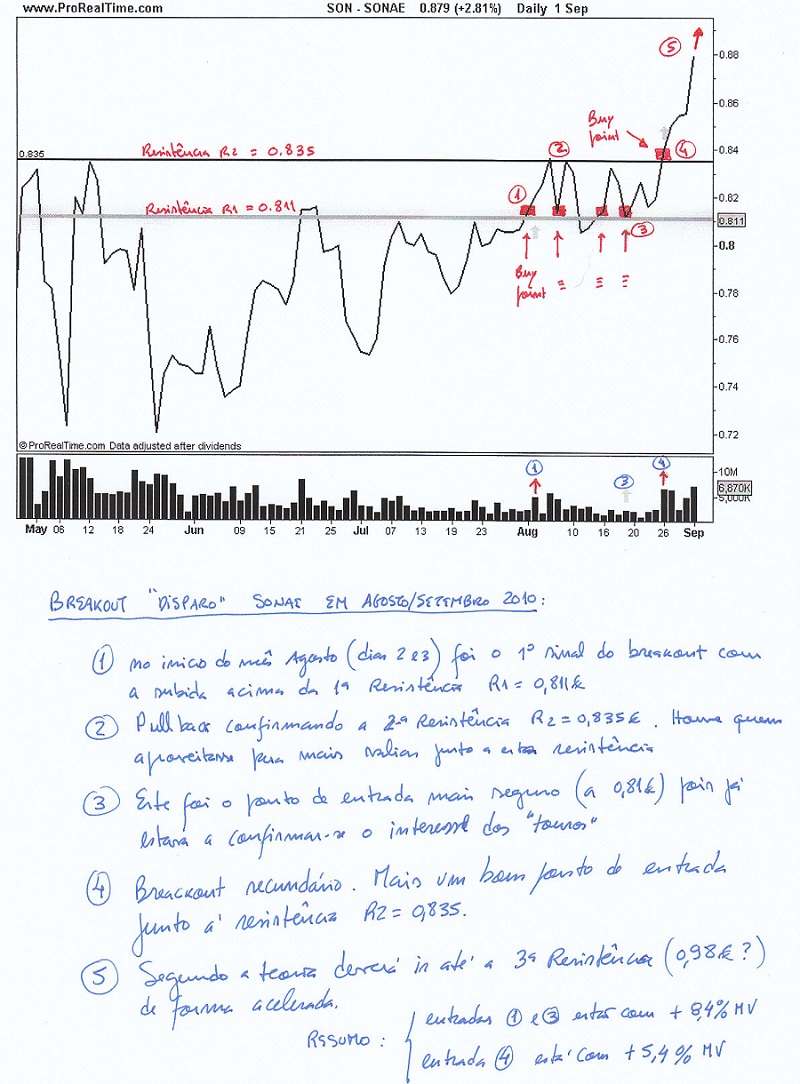 www.ProRealTime.com SON - SONAE 0.879 (+2.81%) Daily 1 Sep
5
0.88
0.86
Buy
point
0.84
0.835
Resistência R2 = 0.835
2
4
0.82
1
Resistência R1 = 0.811
0.811
3
0.8
Buy
point
0.78
0.76
0.74
0.72
© ProRealTime.com Data adjusted after dividends
1
3
4
10M
6,870K
5,000K
May 06 12 18 24 Jun 09 15 21 25 Jul 07 13 19 23 Aug 10 16 20 26 Sep
BREAKOUT "DISPARO" SONAE EM AGOSTO/SETEMBRO 2010:
1 no início do mês Agosto (dias 2 e 3) foi o 1º sinal do breakout com
a subida acima da 1ª Resistência R1 = 0,811€
2 Pull back confirmando a 2ª Resistência R2 = 0,835€. Houve quem
aproveitasse para mais valias junto a esta resistência
3 Este foi o ponto de entrada mais seguro (a 0,81€) pois já
estava a confirmar-se o interesse dos "touros"
4 Breackout secundário. Mais um bom ponto de entrada
junto á resistência R2 = 0,835.
5 Segundo a teoria deverá ir até a 3ª Resistência (0,98€?)
de forma acelerada.
RESUMO :
entradas 1 e 3 estão com + 8,4% MV
entrada 4 está com + 5,4% MV